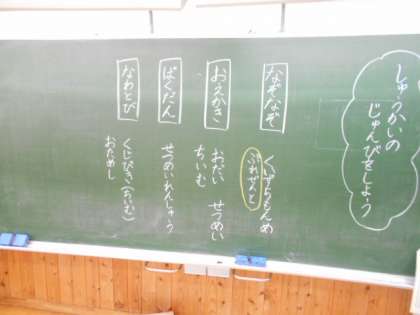 しゅうかいの
じゅんびをしよう
なぞなぞ
くいずもんめ
ぷれぜんと
おえかき
おだい せつめい
ちいむ
ばくだん
せつめいれんしゅう
なわとび
くじびき(ちいむ)
おためし